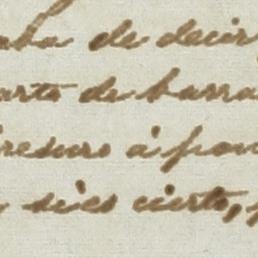 aba de decir
arte de barra
resuro á pon
si es cierto,